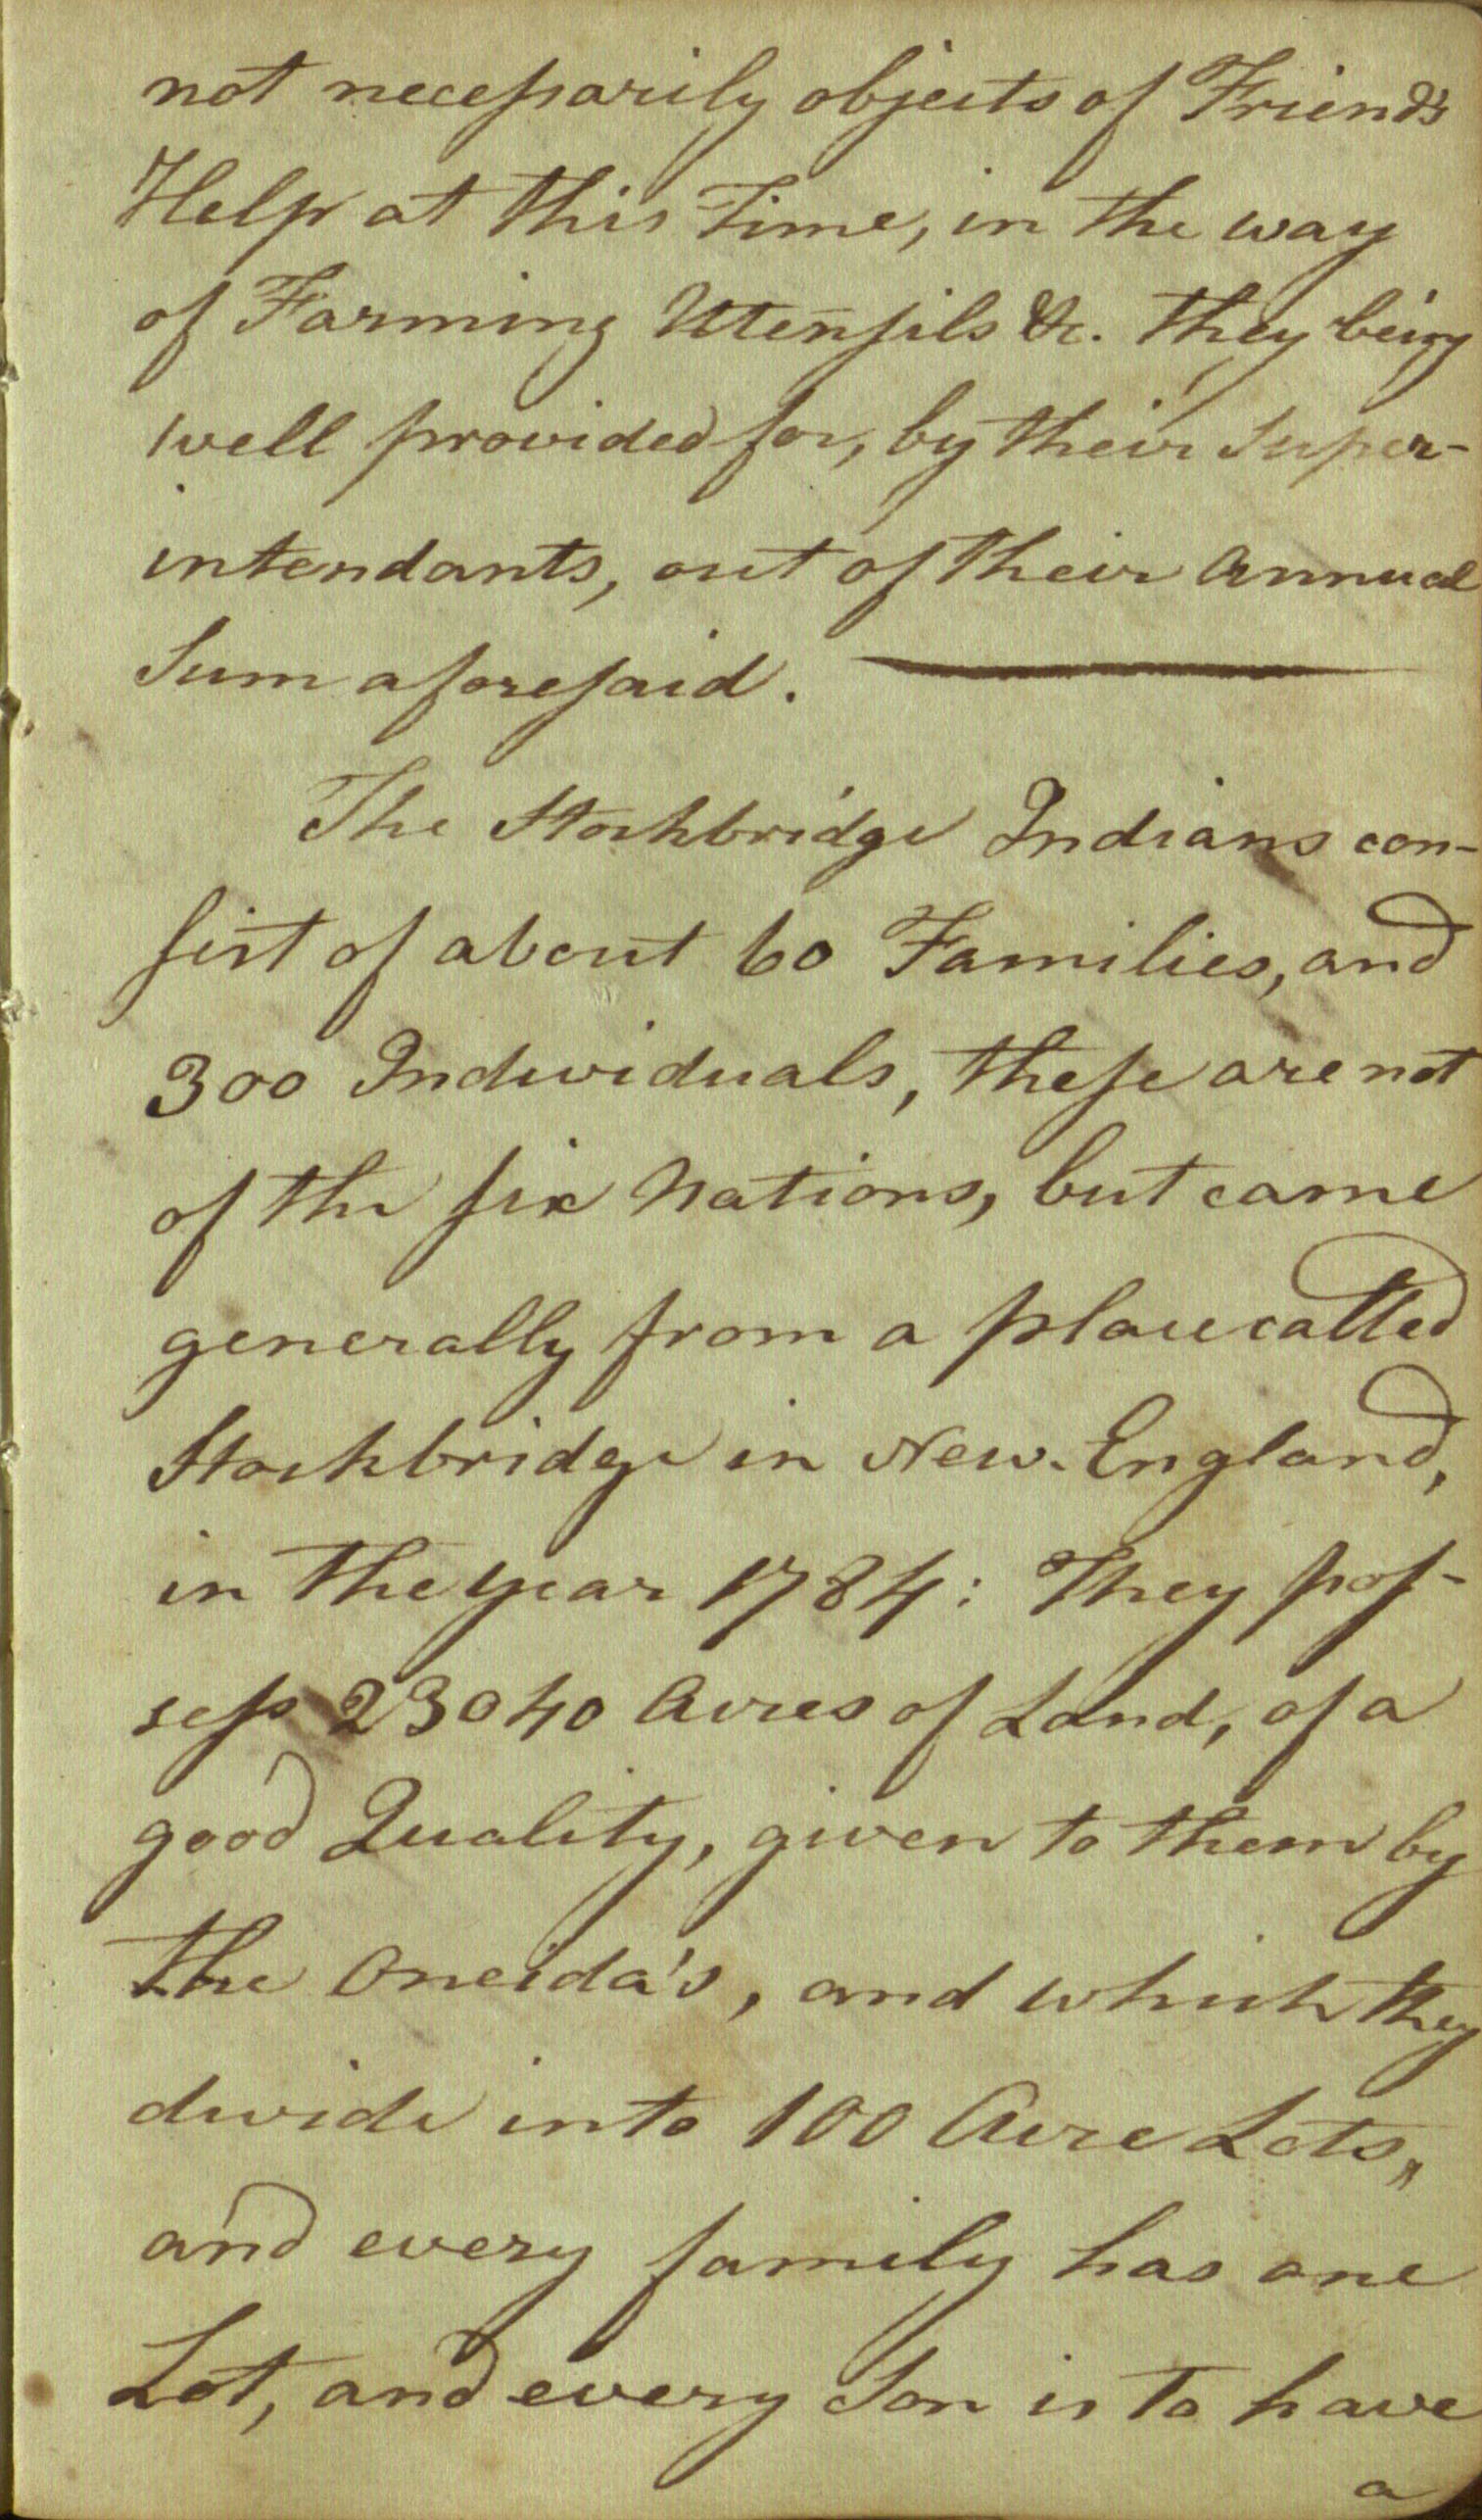 not necessarily objects of Friends
Help at this Time, in the way
of Farming Utensils &c. they being
well provided for, by their Super-
intendants, out of their Annual
Sum aforesaid.
The Stockbridge Indians con-
sist of about 60 Families, and
300 Individuals, these are not
of the six Nations, but came
generally from a place called
Stockbridge in New-England,
in the year 1784: They pos-
sess 23040 Acres of Land, of a
good Quality, given to them by
the Oneida's, and which they
divide into 100 Acre Lots,,
and every family has one
Lot, and every Son is to have
a